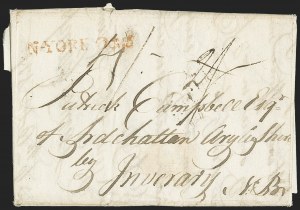 N-YORK
Patrick Campbell Esqr
of Ardchattan Argyleshire
by
Inverary
N. Br